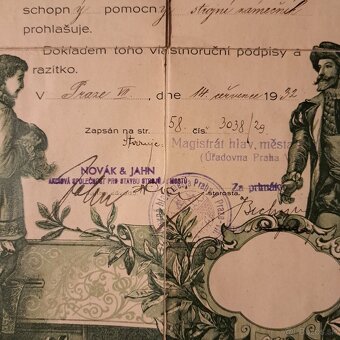 schopný pomocný strojní zámečník
prohlašuje.
Dokladem toho vlastnoruční podpisy a
razítko.
V Praze VII , dne 14. července 1932
Zapsán na str. 58. čís. 3038/29
Magistrát hlav. města
(Úřadovna Praha V
NOVÁK & JAHN
AKCIOVÁ SPOLEČNOST PRO STAVBU STROJŮ A MOSTŮ
Za primát
starosta.